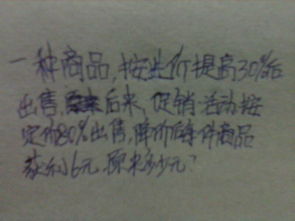 一种商品,按出价提高30%后
出售,后来,促销活动按
定价80%出售,降价后每件商品
获利16元,原来多少元?